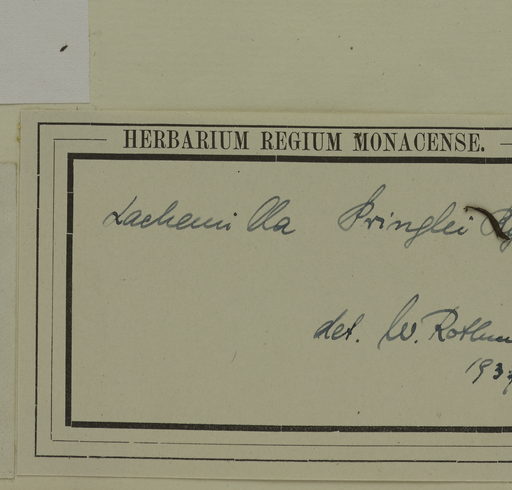 HERBARIUM REGIUM MONACENSE.
Lachemilla Pringlei
det. W. Rothm
193